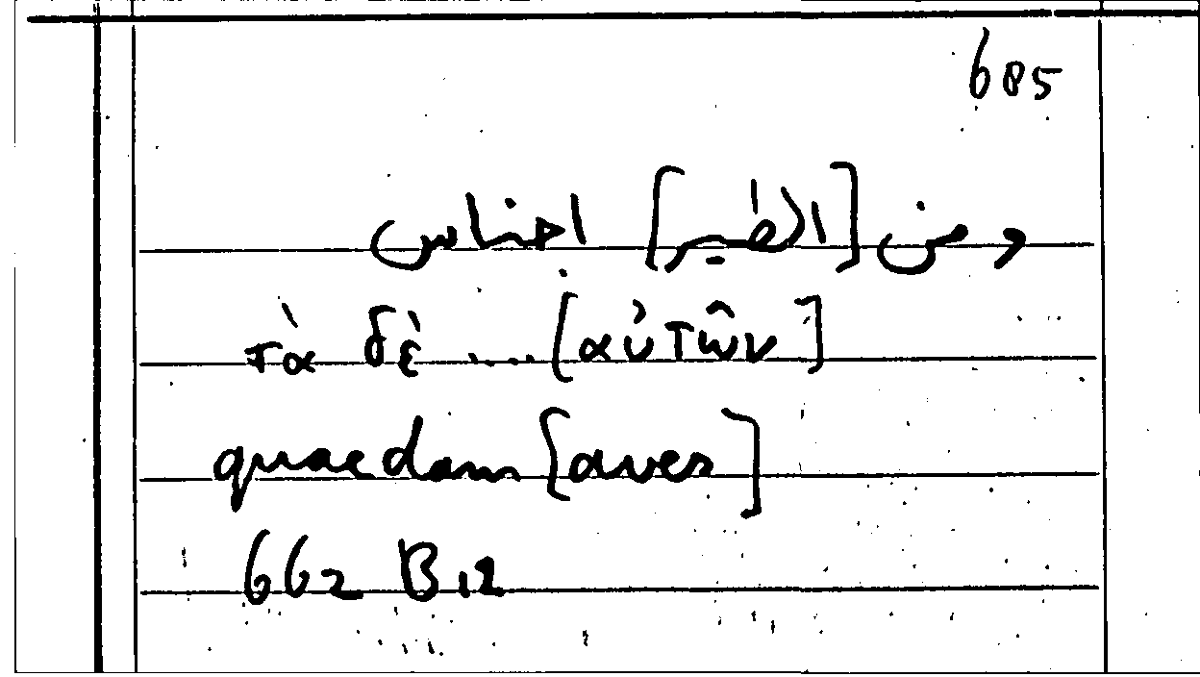 685
ومن [الطير] اجناس
τὰ δὲ .... [αὐτῶν]
quaedam [aves]
662 B 12